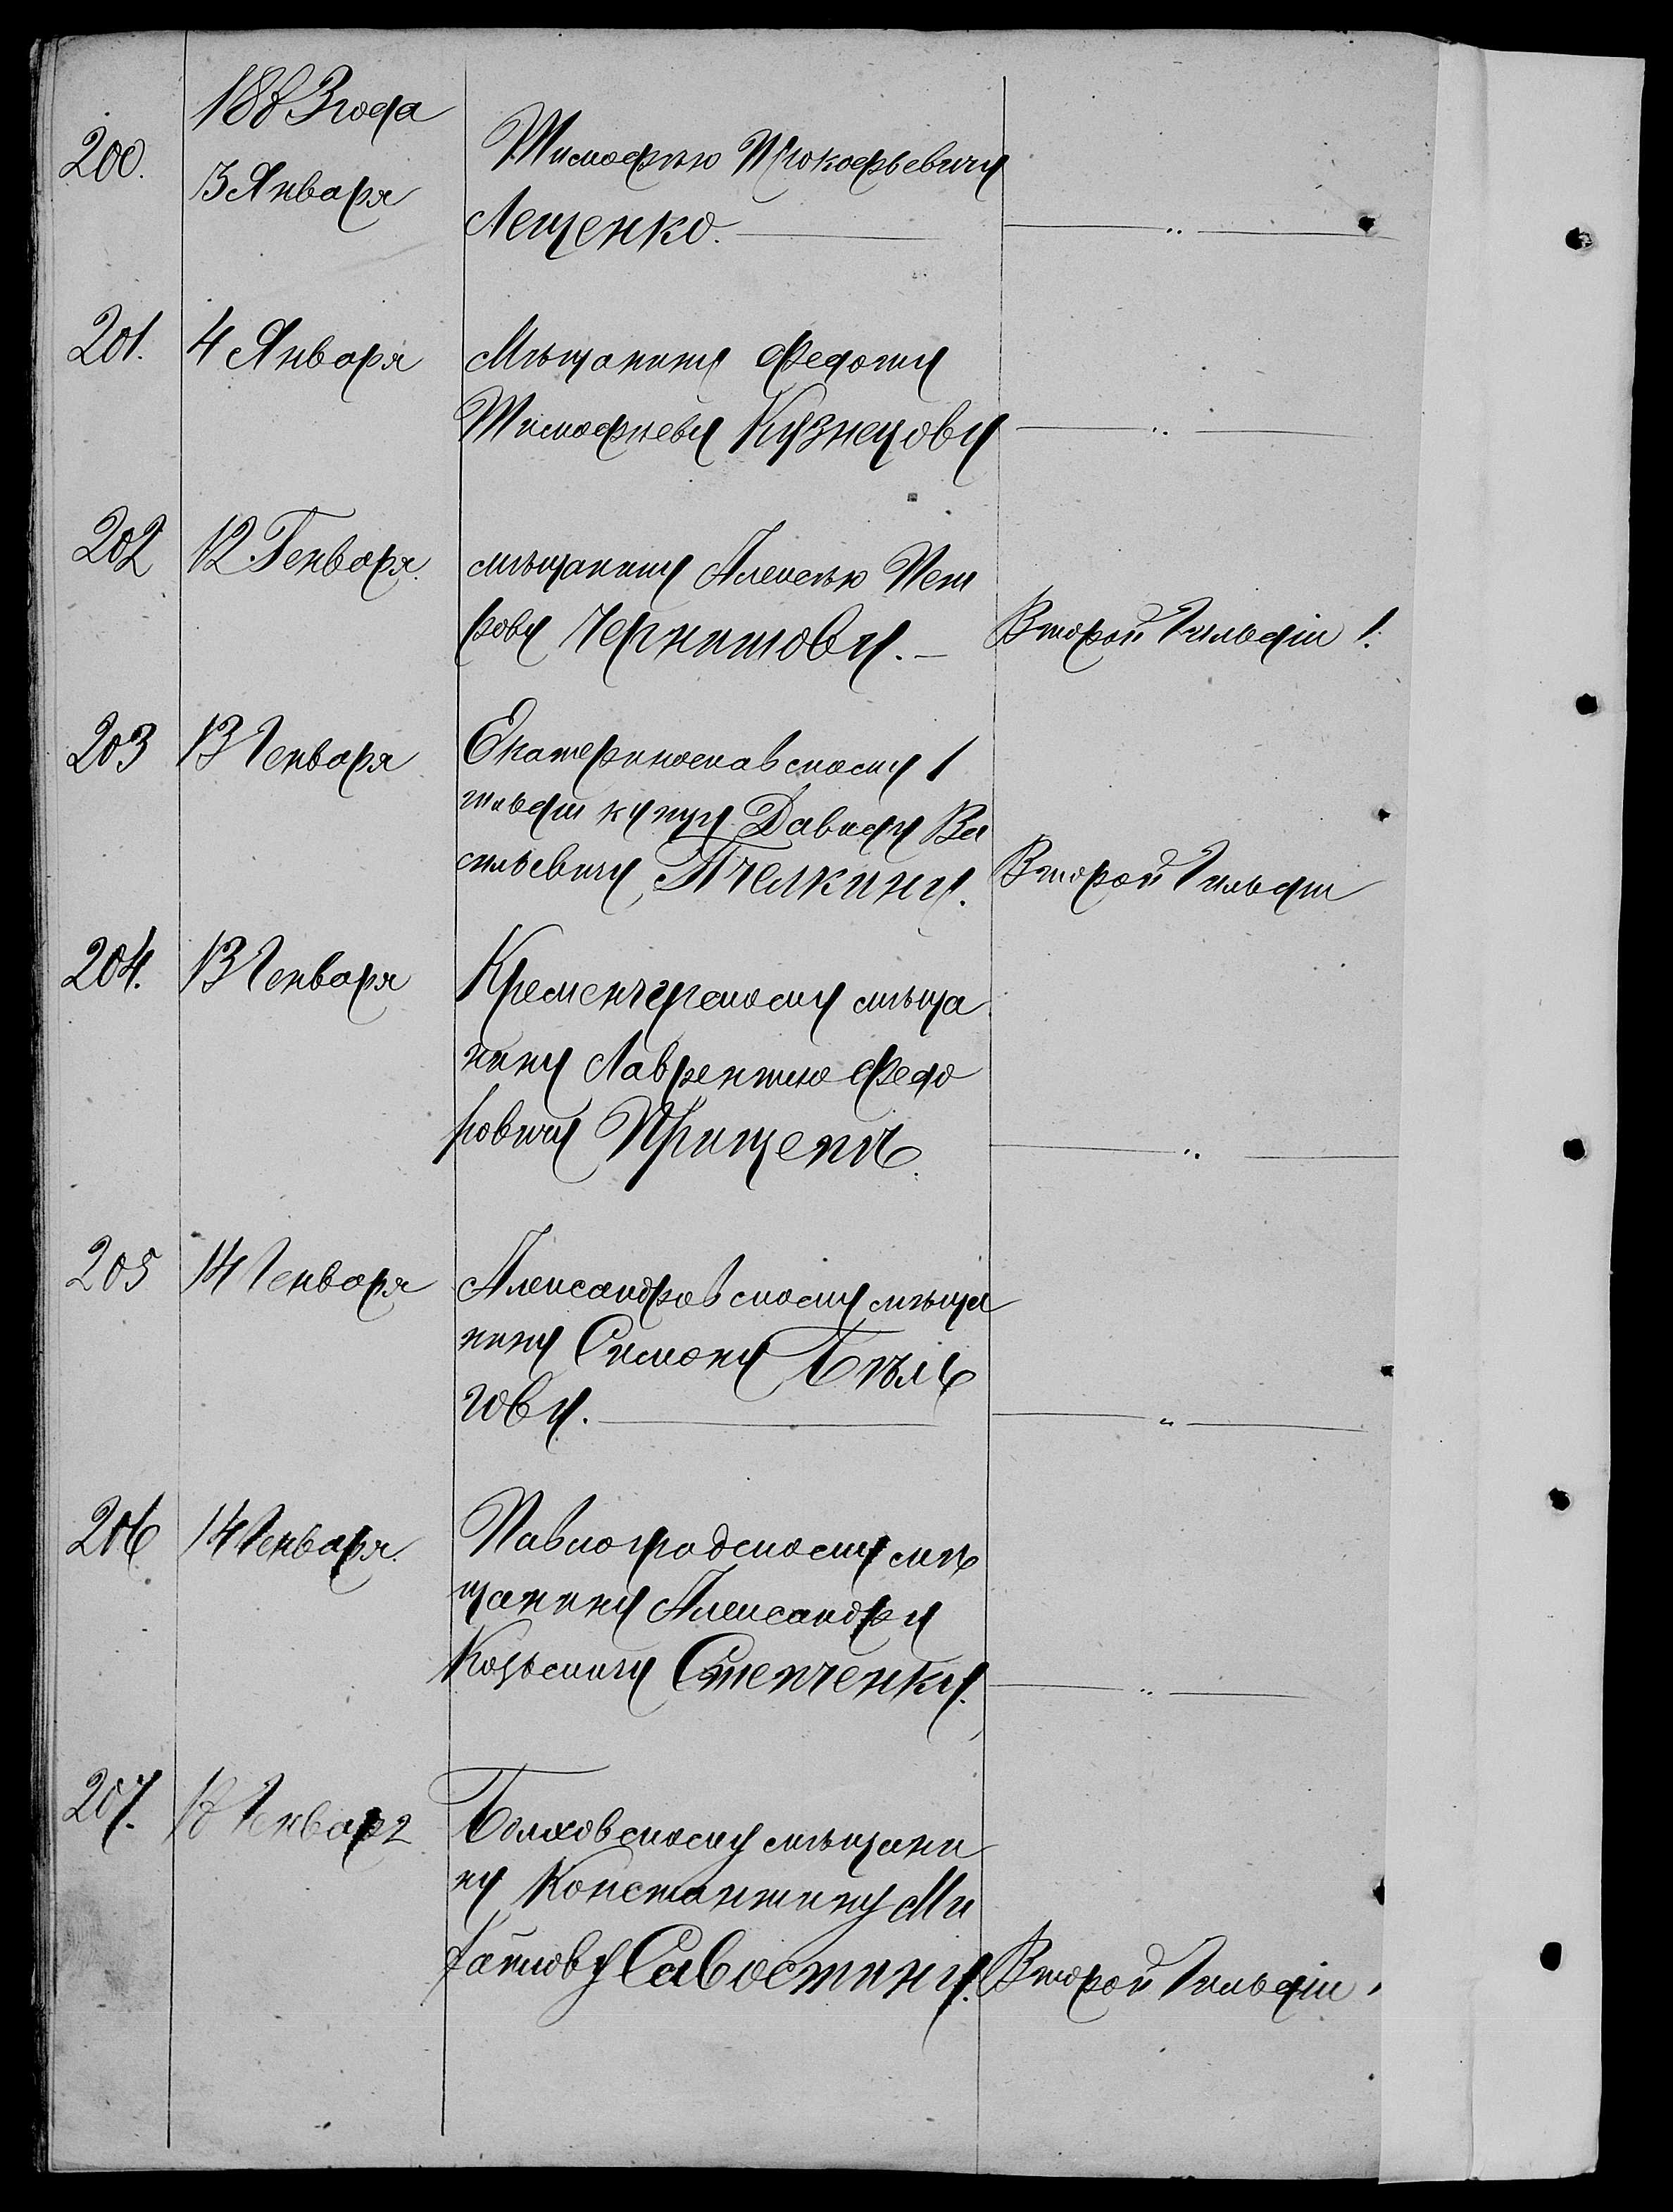 1883 года
200. 3 Января Тимофѣю Прокофьевичу
Лещенко. — „ —
201. 4 Января Мѣщанину Федоту
Тимофѣеву Кузнецову — „ —
202 12 Генваря. мѣщанину Алексѣю Пет
рову Чернишову. — Второй Гильдіи
203 13 Генваря Екатеринославскому 1
гильдіи купцу Давиду Ва
сильевичу Пчелкину. Второй Гильдіи
204. 13 Генваря Кременчугскому мѣща
нину Лаврентию Федо
ровичу Прищепѣ. — „ —
205 14 Генваря Александровскому мѣща
нину Симону Бѣль
гову. — „ —
206 14 Генваря. Павлоградскому мѣ
щанину Александру
Козьмичу Степченку. — „ —
207. Генваря Болховскому мѣщани
ну Константину Ми
хайлову Савостину. Второй Гильдіи